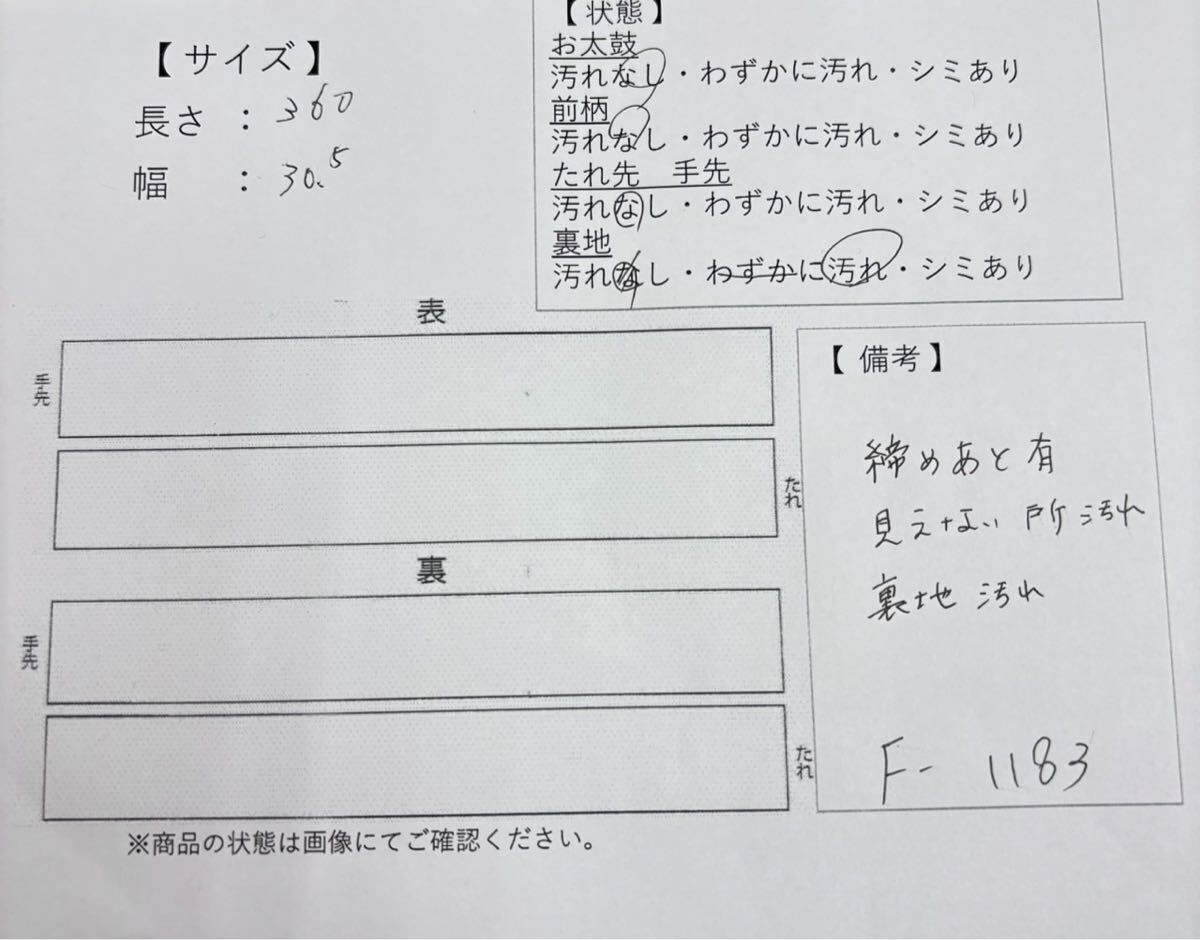 【サイズ】
長さ : 360
幅 : 30.5
【状態】
お太鼓
汚れなし・わずかに汚れ・シミあり
前柄
汚れなし・わずかに汚れ・シミあり
たれ先 手先
汚れなし・わずかに汚れ・シミあり
裏地
汚れなし・わずかに汚れ・シミあり
表
手先
たれ
裏
手先
たれ
※商品の状態は画像にてご確認ください。
【備考】
締めあと有
見えない所汚れ
裏地汚れ
F- 1183